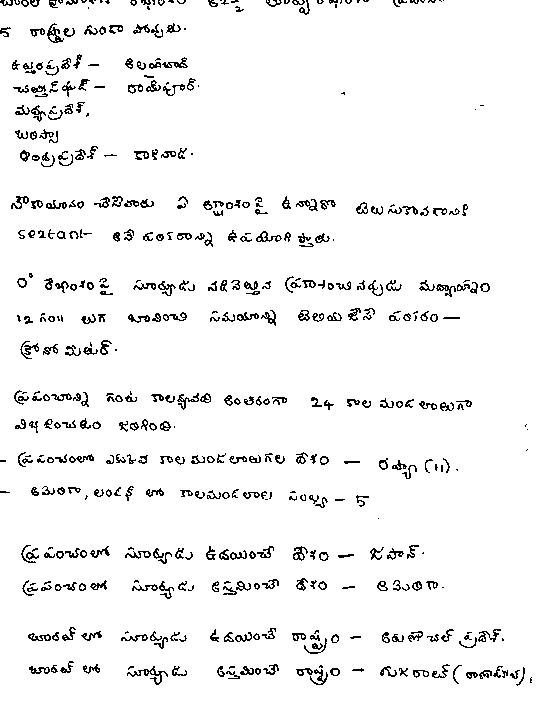 భారత ప్రామాణిక రేఖాంశం 82½ తూర్పు రేఖాంశం
5 రాష్ట్రాల గుండా పోవును.
ఉత్తరప్రదేశ్ - అలహాబాద్
చత్తీస్‌ఘడ్ - రాయ్‌పూర్.
మధ్యప్రదేశ్,
ఒరిస్సా
ఆంధ్రప్రదేశ్ - కాకినాడ.
నౌకాయానం చేసేవారు ఏ అక్షాంశంపై ఉన్నారో తెలుసుకోవడానికి
sextant అనే పరికరాన్ని ఉపయోగిస్తారు.
0° రేఖాంశంపై సూర్యుడు నడినెత్తిన ప్రకాశించినప్పుడు మధ్యాహ్నం
12 గం॥ లుగ భావించి సమయాన్ని తెలియజేసే పరికరం -
క్రోనోమీటర్.
ప్రపంచాన్ని గంట కాలవ్యవధి అంతరంగా 24 కాల మండలాలుగా
విభజించడం జరిగింది.
- ప్రపంచంలో ఎక్కువ కాల మండలాలుగల దేశం - రష్యా (11).
- అమెరికా, లండన్ లో కాలమండలాల సంఖ్య - 5
ప్రపంచంలో సూర్యుడు ఉదయించే దేశం - జపాన్.
ప్రపంచంలో సూర్యుడు అస్తమించే దేశం - అమెరికా.
భారత్ లో సూర్యుడు ఉదయించే రాష్ట్రం - అరుణాచల్ ప్రదేశ్.
భారత్ లో సూర్యుడు అస్తమించే రాష్ట్రం - గుజరాత్